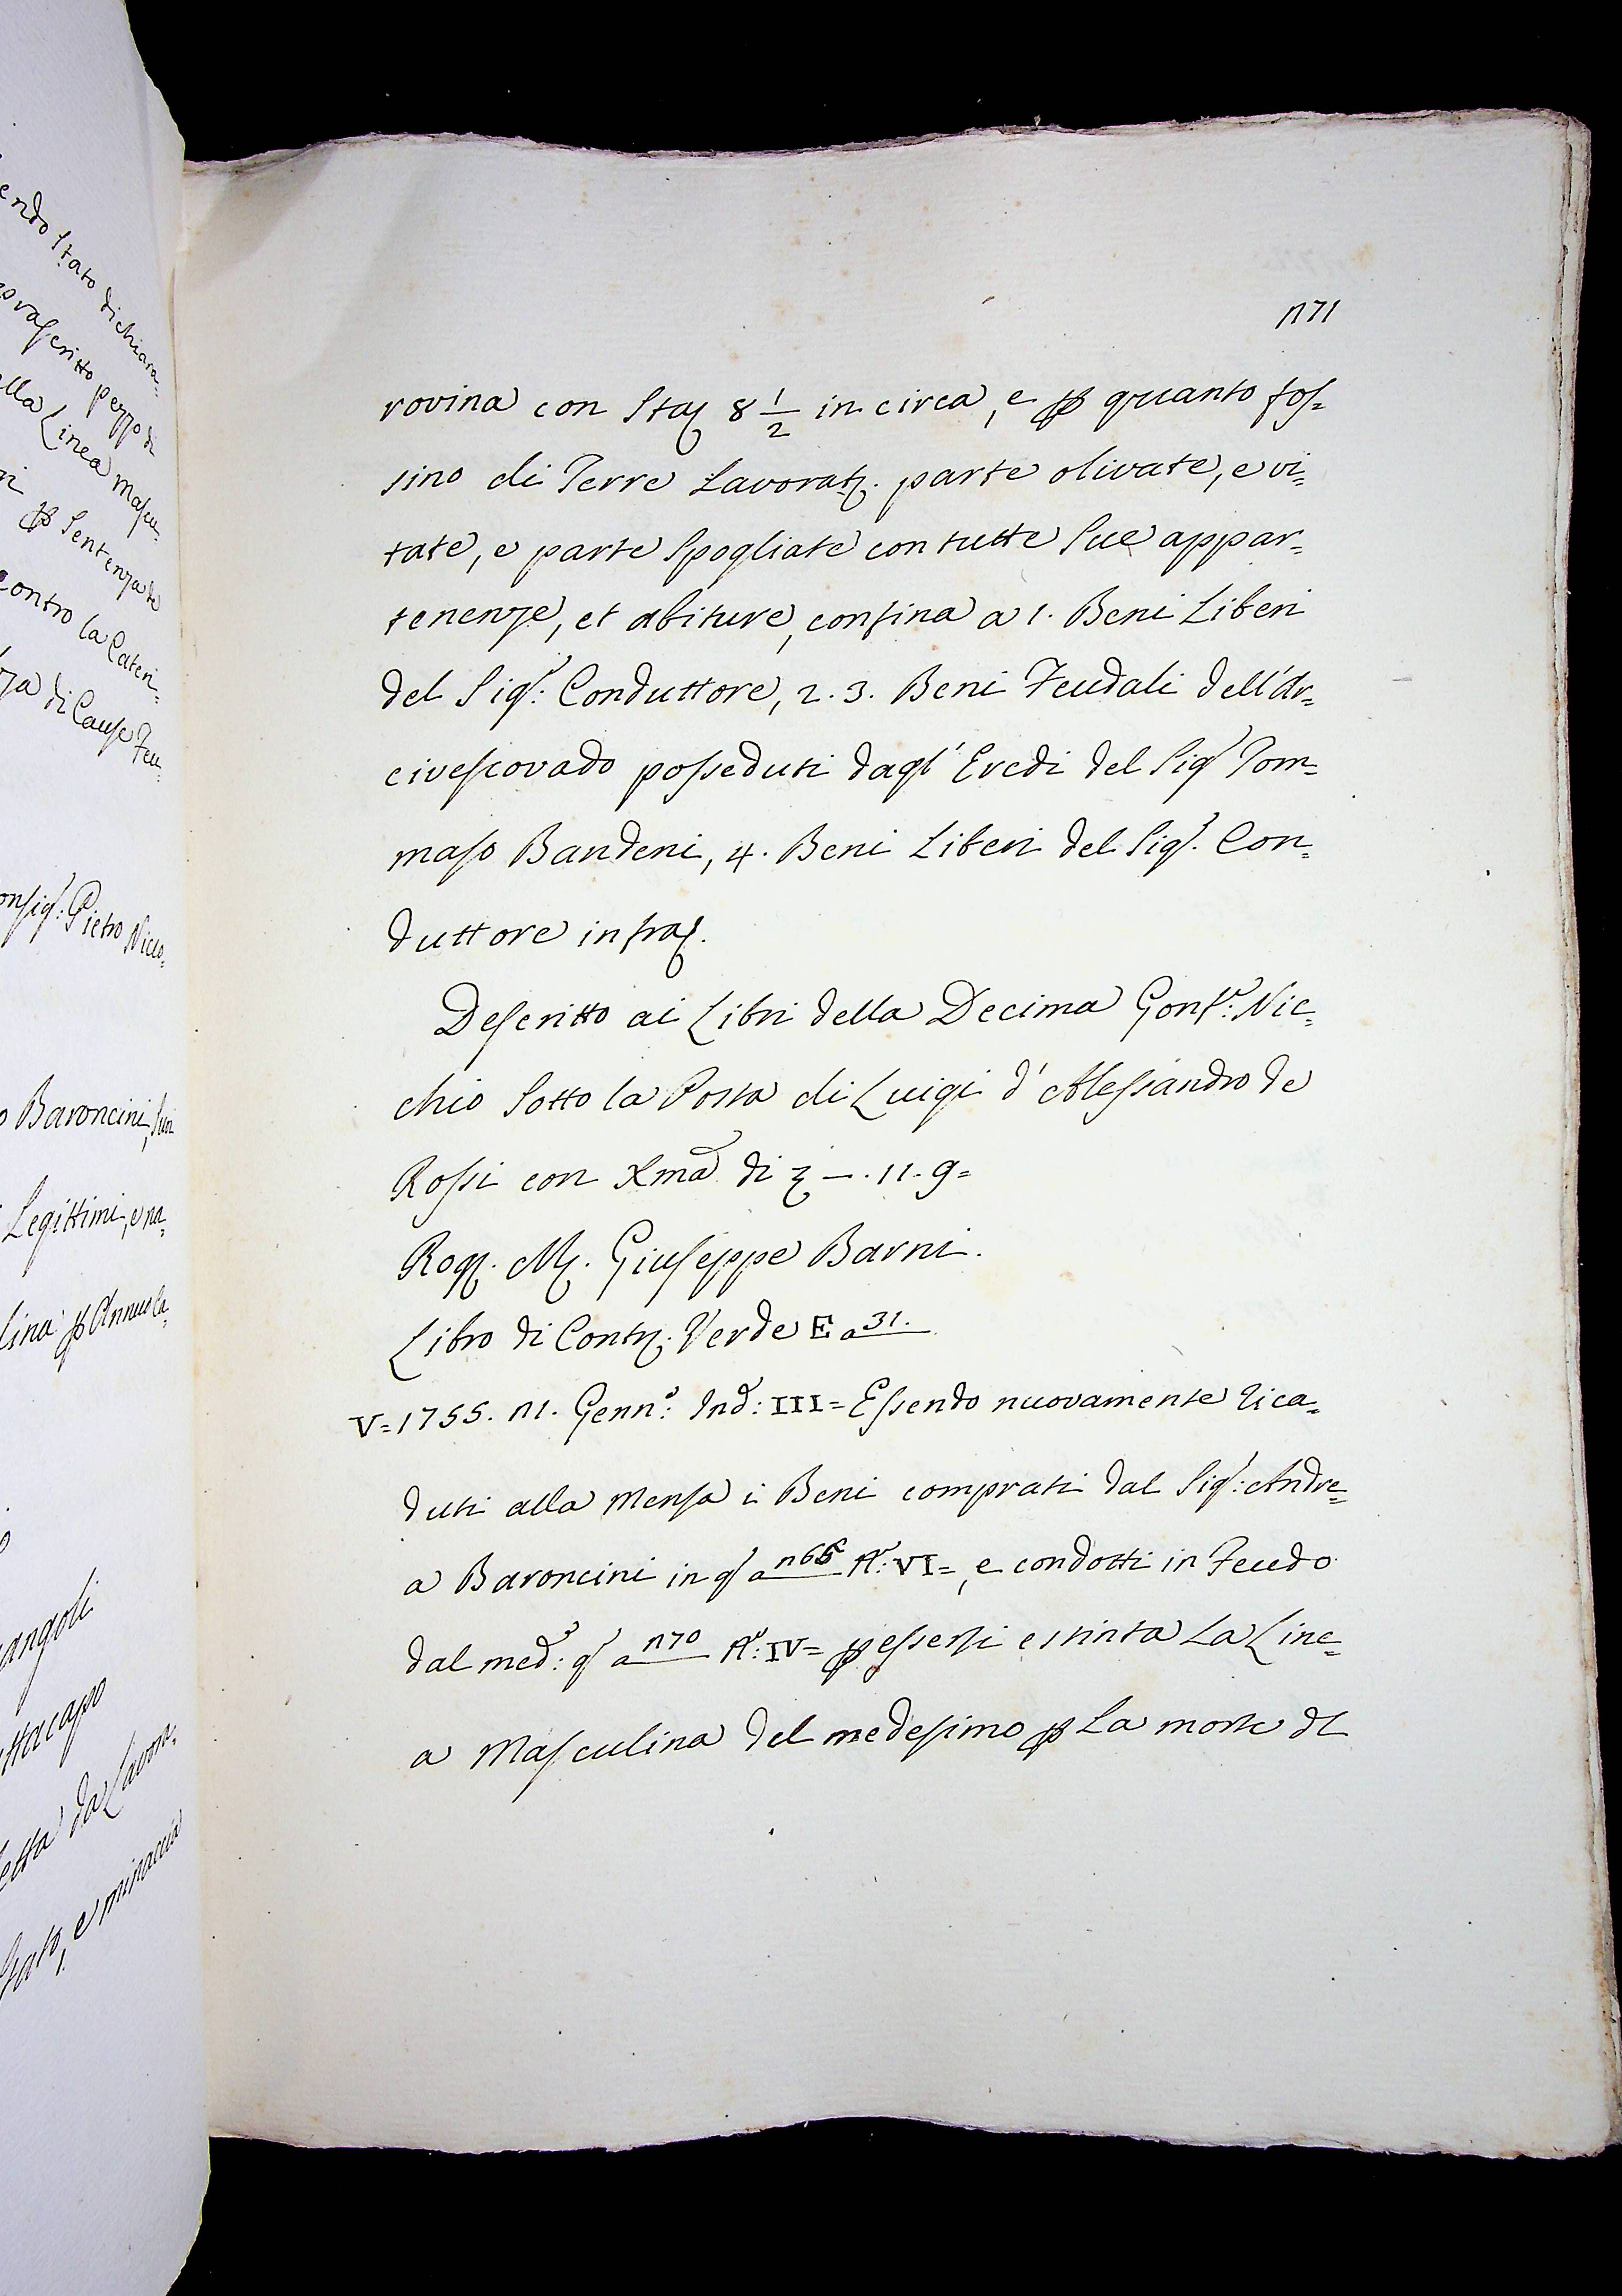 endo Stato dichiara-
ovascritto pezzo di
ella Linea Mascu-
p Sentenza de
contro la Cateri-
za di Cause Feu-
onsigr: Pietro Nicco-
o Baroncini, suoi
Legittimi, e na-
lina p Annuola
angoli
ttacapo
etta da Lavora-
stato, e minaccia
171
rovina con Sta 8 1/2 in circa, e p quanto fos=
sino di Terre Lavorat. parte olivate, e vi=
tate, e parte Spogliate con tutte Sue appar=
tenenze, et abiture, confina a 1. Beni Liberi
del Sigr: Conduttore, 2. 3. Beni Feudali dell'Ar=
civescovado posseduti dagl' Eredi del Sigr Tom=
maso Bandeni, 4. Beni Liberi del Sigr. Con=
duttore infra.
Descritto ai Libri della Decima Gonfe: Nic=
chio Sotto la Posta di Luigi d'Alessandro de
Rossi con Xma di —. 11. 9=
Rog. M. Giuseppe Barni.
Libro di Contr. Verde E a 31.
V=1755. 11. Genn°: Ind: III= Essendo nuovamente rica=
duti alla Mensa i Beni comprati dal Sigr: Andre=
a Baroncini in q a 165 N°: VI=, e condotti in Feudo
dal med°: q a 170 N°: IV= p essersi estinta La Line=
a Masculina del medesimo p La morte di